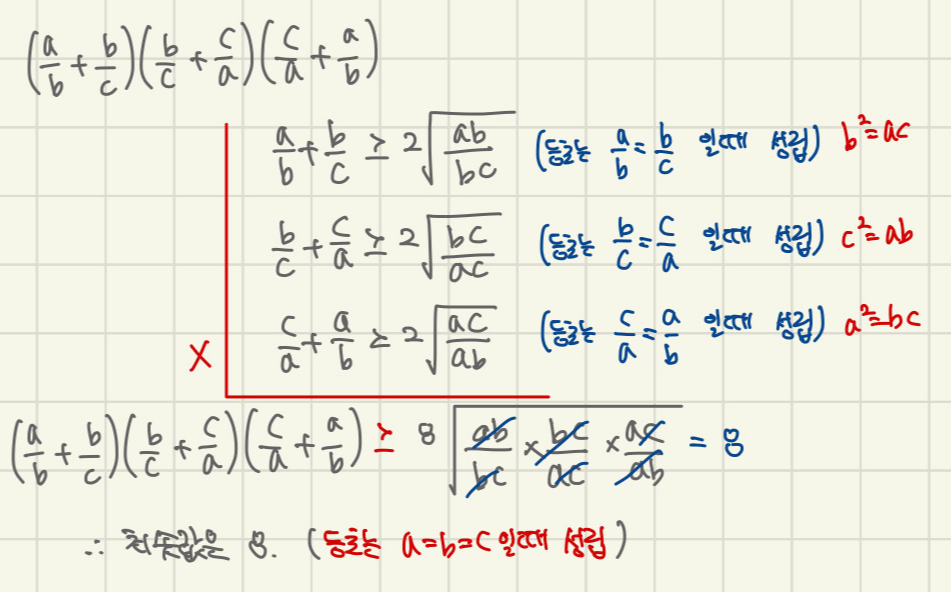 (a/b + b/c)(b/c + c/a)(c/a + a/b)
a/b + b/c ≥ 2√(ab/bc) (등호는 a/b = b/c 일때 성립) b²=ac
b/c + c/a ≥ 2√(bc/ac) (등호는 b/c = c/a 일때 성립) c²=ab
× c/a + a/b ≥ 2√(ac/ab) (등호는 c/a = a/b 일때 성립) a²=bc
(a/b + b/c)(b/c + c/a)(c/a + a/b) ≥ 8√(ab/bc × bc/ac × ac/ab) = 8
∴ 최솟값은 8. (등호는 a=b=c 일때 성립)